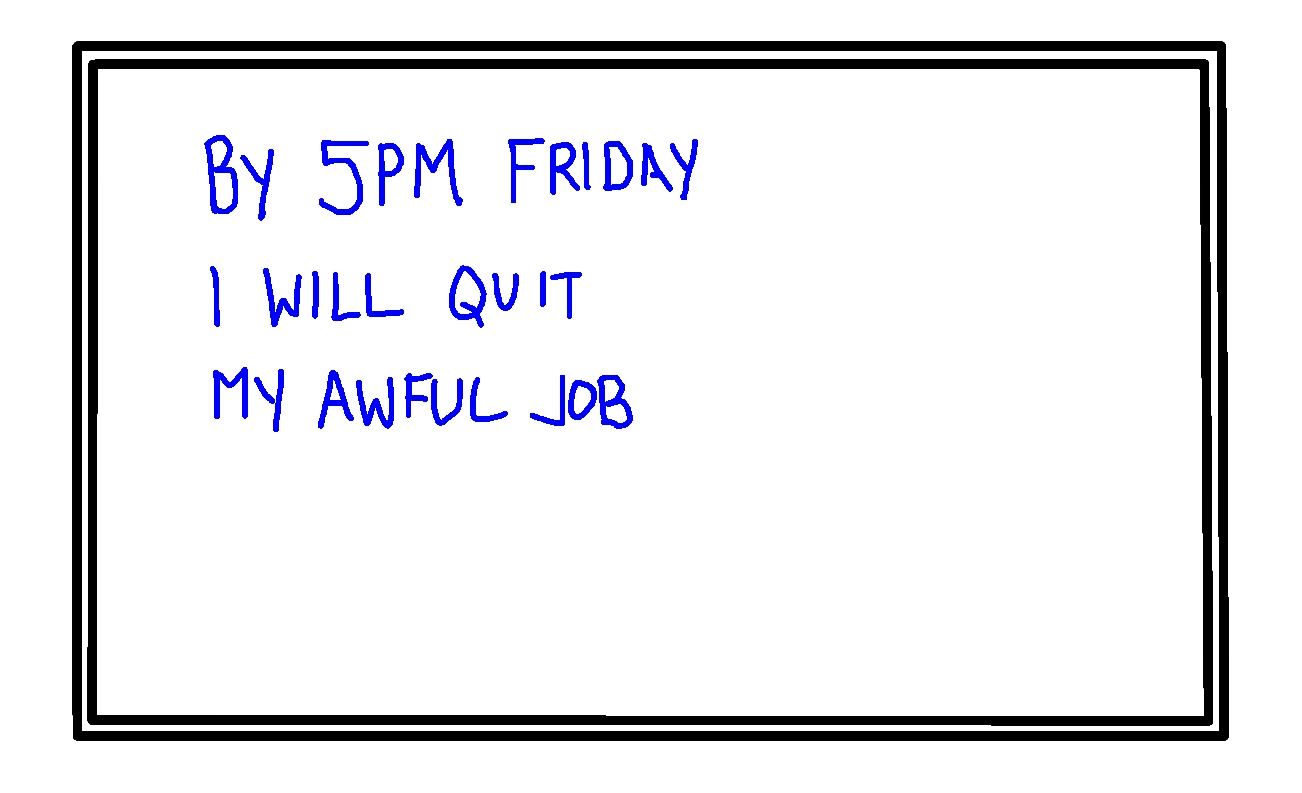 BY 5PM FRIDAY
I WILL QUIT
MY AWFUL JOB